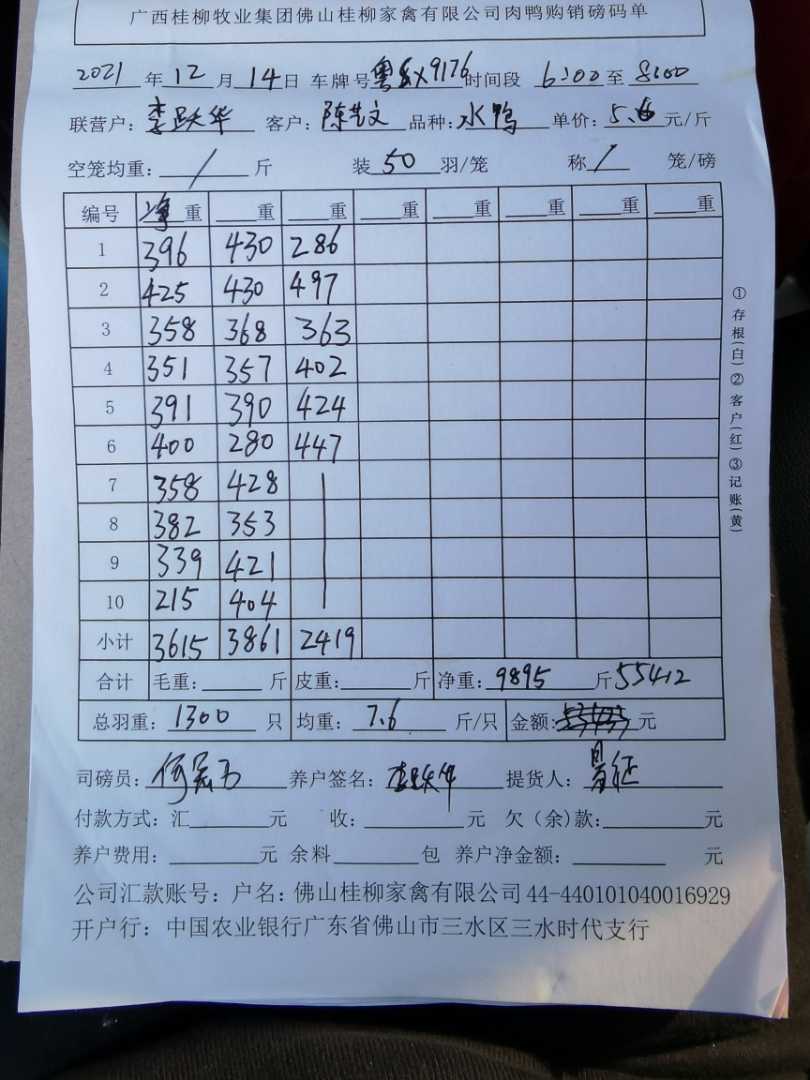 广西桂柳牧业集团佛山桂柳家禽有限公司肉鸭购销磅码单
2021 年 12 月 14 日 车牌号 9176 时间段 6:00 至 8:00
联营户: 李跃华 客户: 陈艺文 品种: 水鸭 单价: 5.6 元/斤
空笼均重: / 斤 装 50 羽/笼 称 / 笼/磅
编号 净重 重 重 重 重 重 重 重
1 396 430 286
2 425 430 497
3 358 368 363
4 351 357 402
5 391 390 424
6 400 280 447
7 358 428
8 382 353
9 339 421
10 215 404
小计 3615 3861 2419
合计 毛重: 斤 皮重: 斤 净重: 9895 斤 55412
总羽重: 1300 只 均重: 7.6 斤/只 金额: 元
司磅员: 养户签名: 李跃华 提货人:
付款方式: 汇 元 收: 元 欠(余)款: 元
养户费用: 元 余料 包 养户净金额: 元
公司汇款账号: 户名: 佛山桂柳家禽有限公司 44-440101040016929
开户行: 中国农业银行广东省佛山市三水区三水时代支行
①存根(白)②客户(红)③记账(黄)